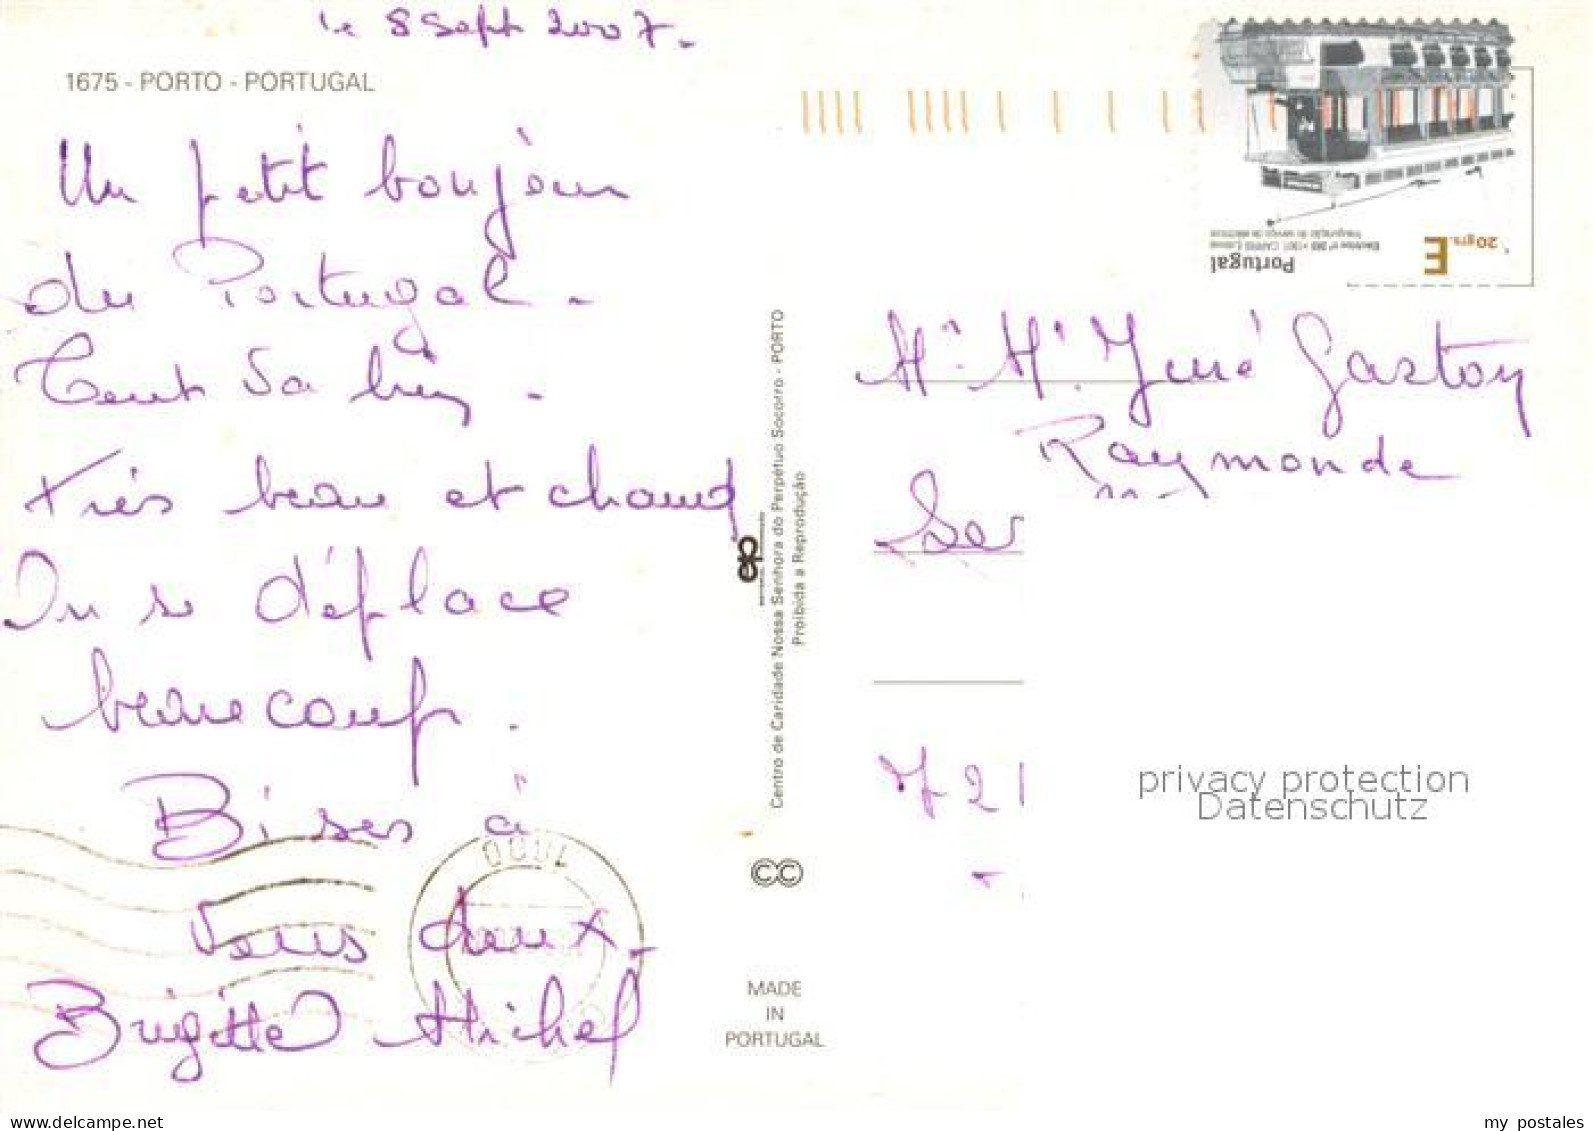 le 8 Sept 2007.
1675 - PORTO - PORTUGAL
Un petit bonjour
du Portugal -
Tout va bien -
très beau et chaud
On se déplace
beaucoup.
Bises à
Vous deux -
Brigitte Michel
Centro de Caridade Nossa Senhora do Perpétuo Socorro - PORTO
Proibida a Reprodução
ep
CC
MADE
IN
PORTUGAL
Portugal
E
20grs.
Inauguração do serviço de eléctricos
Gaston
Raymonde
72
privacy protection
Datenschutz
my postales